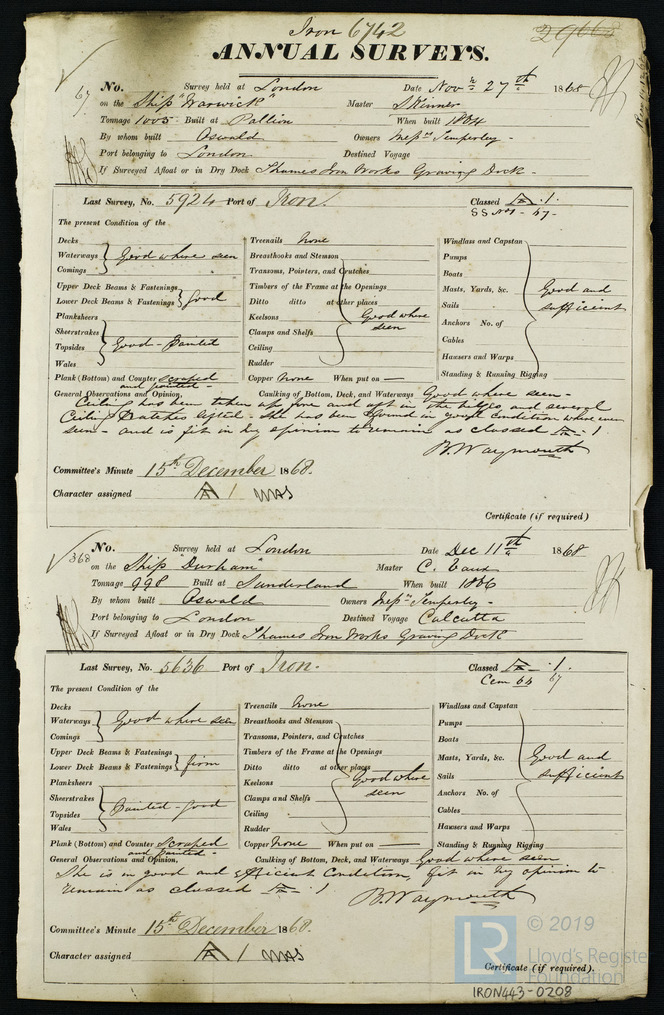 Iron 6742
29668
ANNUAL SURVEYS.
67
No. Survey held at London Date Novr 27th 1868
on the Ship "Warwick" Master Skinner
Tonnage 1005 Built at Pallion When built 1864
By whom built Oswald Owners Messrs Temperley -
Port belonging to London Destined Voyage
If Surveyed Afloat or in Dry Dock Thames Iron Works Graving Dock -
Last Survey, No. 5924 Port of Iron. Classed A - 1.
SS No1 - 67 -
The present Condition of the
Decks
Waterways Good where seen
Comings
Upper Deck Beams & Fastenings
Lower Deck Beams & Fastenings Good
Planksheers
Sheerstrakes
Topsides Good - Painted
Wales
Plank (Bottom) and Counter Scraped
and painted -
Treenails None
Breasthooks and Stemson
Transoms, Pointers, and Crutches
Timbers of the Frame at the Openings
Ditto ditto at other places
Keelsons Good where
Clamps and Shelfs seen
Ceiling
Rudder
Copper None When put on —
Windlass and Capstan
Pumps
Boats
Masts, Yards, &c. Good and
Sails sufficient
Anchors No. of
Cables
Hawsers and Warps
Standing & Running Rigging
General Observations and Opinion, Caulking of Bottom, Deck, and Waterways Good where seen -
Ceiling has been taken up fore and aft in the bilges and several
Ceiling Hatches lifted - She has been found in good condition where
seen - and is fit in my opinion to remain as classed A - 1
B. Waymouth
Committee's Minute 15th December 1868.
Character assigned A 1
Certificate (if required)
368
No. Survey held at London Date Dec 11th 1868
on the Ship Durham Master C. Evans
Tonnage 998 Built at Sunderland When built 1866
By whom built Oswald Owners Messrs Temperley -
Port belonging to London Destined Voyage Calcutta
If Surveyed Afloat or in Dry Dock Thames Iron Works Graving Dock
Last Survey, No. 5636 Port of Iron. Classed A - 1.
Cem 66 67
The present Condition of the
Decks
Waterways Good where seen
Comings
Upper Deck Beams & Fastenings
Lower Deck Beams & Fastenings firm
Planksheers
Sheerstrakes
Topsides Painted - good
Wales
Plank (Bottom) and Counter Scraped
and painted -
Treenails None
Breasthooks and Stemson
Transoms, Pointers, and Crutches
Timbers of the Frame at the Openings
Ditto ditto at other places
Keelsons Good where
Clamps and Shelfs seen
Ceiling
Rudder
Copper None When put on —
Windlass and Capstan
Pumps
Boats
Masts, Yards, &c. Good and
Sails sufficient
Anchors No. of
Cables
Hawsers and Warps
Standing & Running Rigging
General Observations and Opinion, Caulking of Bottom, Deck, and Waterways Good where seen
She is in good and efficient Condition, fit in my opinion to
remain as classed A - 1 B. Waymouth
Committee's Minute 15th December 1868.
Character assigned A 1
Certificate (if required).
LR © 2019
Lloyd's Register
Foundation
IRON443-0208